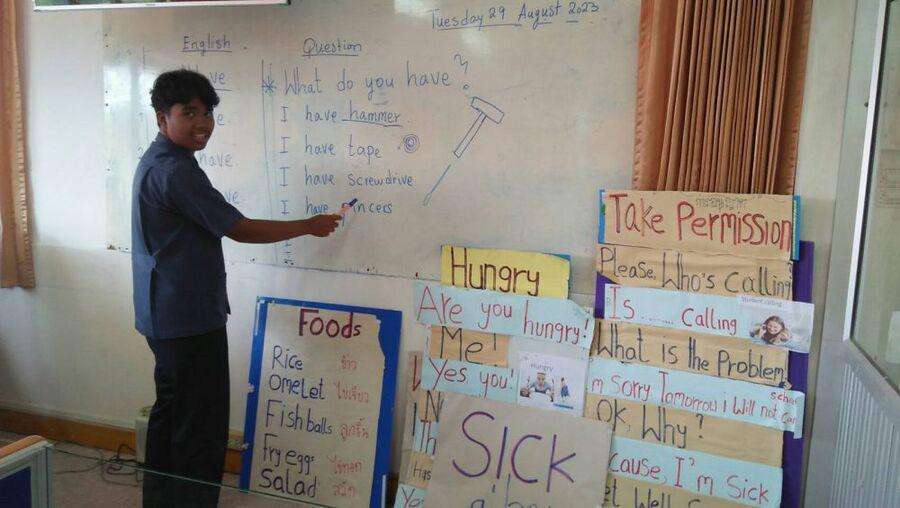 Tuesday 29 August 2023
English
Question
What do you have?
I have hammer
I have tape
I have screwdrive
I have pincers
I
have
Foods
Rice ข้าว
Omelet ไข่เจียว
Fish balls ลูกชิ้น
Fry eggs ไข่ทอด
Salad สลัด
Hungry
Are you hungry!
Me!
Yes, you!
Hungry
Sick
การอนุญาต
Take Permission
Please, Who's calling?
Is ........ Calling
Student calling
What is the Problem
m Sorry Tomorrow i Will not
OK, Why?
cause, I'm Sick
Get Well